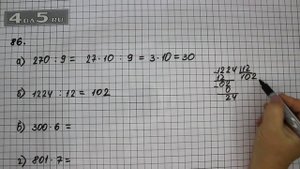 4AS5.RU
86.
а) 270 : 9 = 27·10 : 9 = 3·10=30
б) 1224 : 12 = 102
в) 300·6 =
г) 801·7 =
1224 12
12 102
02
0
24